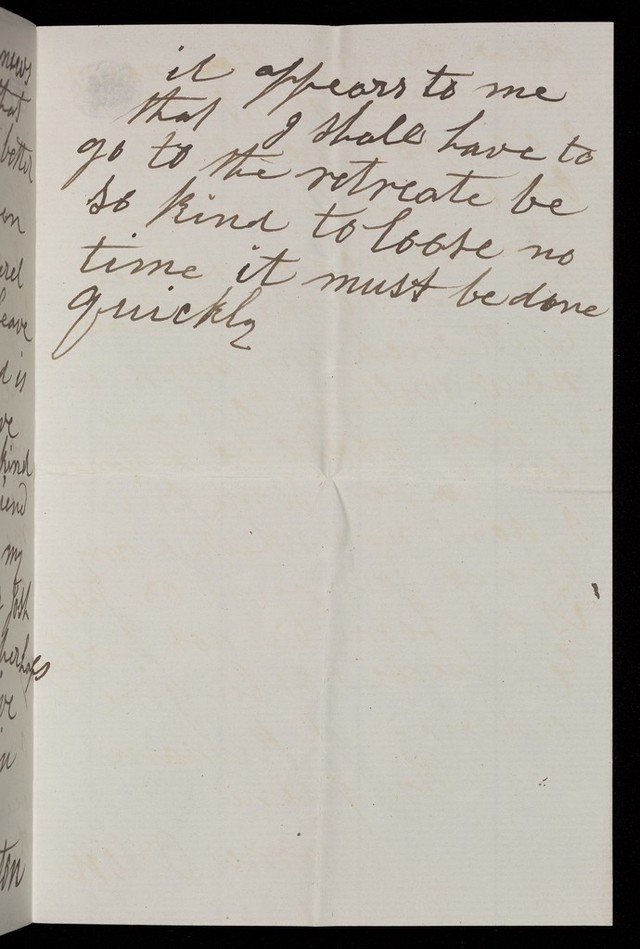 it appears to me
that I shall have to
go to the retreate be
so kind to loose no
time it must be done
quickly
news
that
better
on
leave
d is
kind
iend
my
post
perhaps
ton